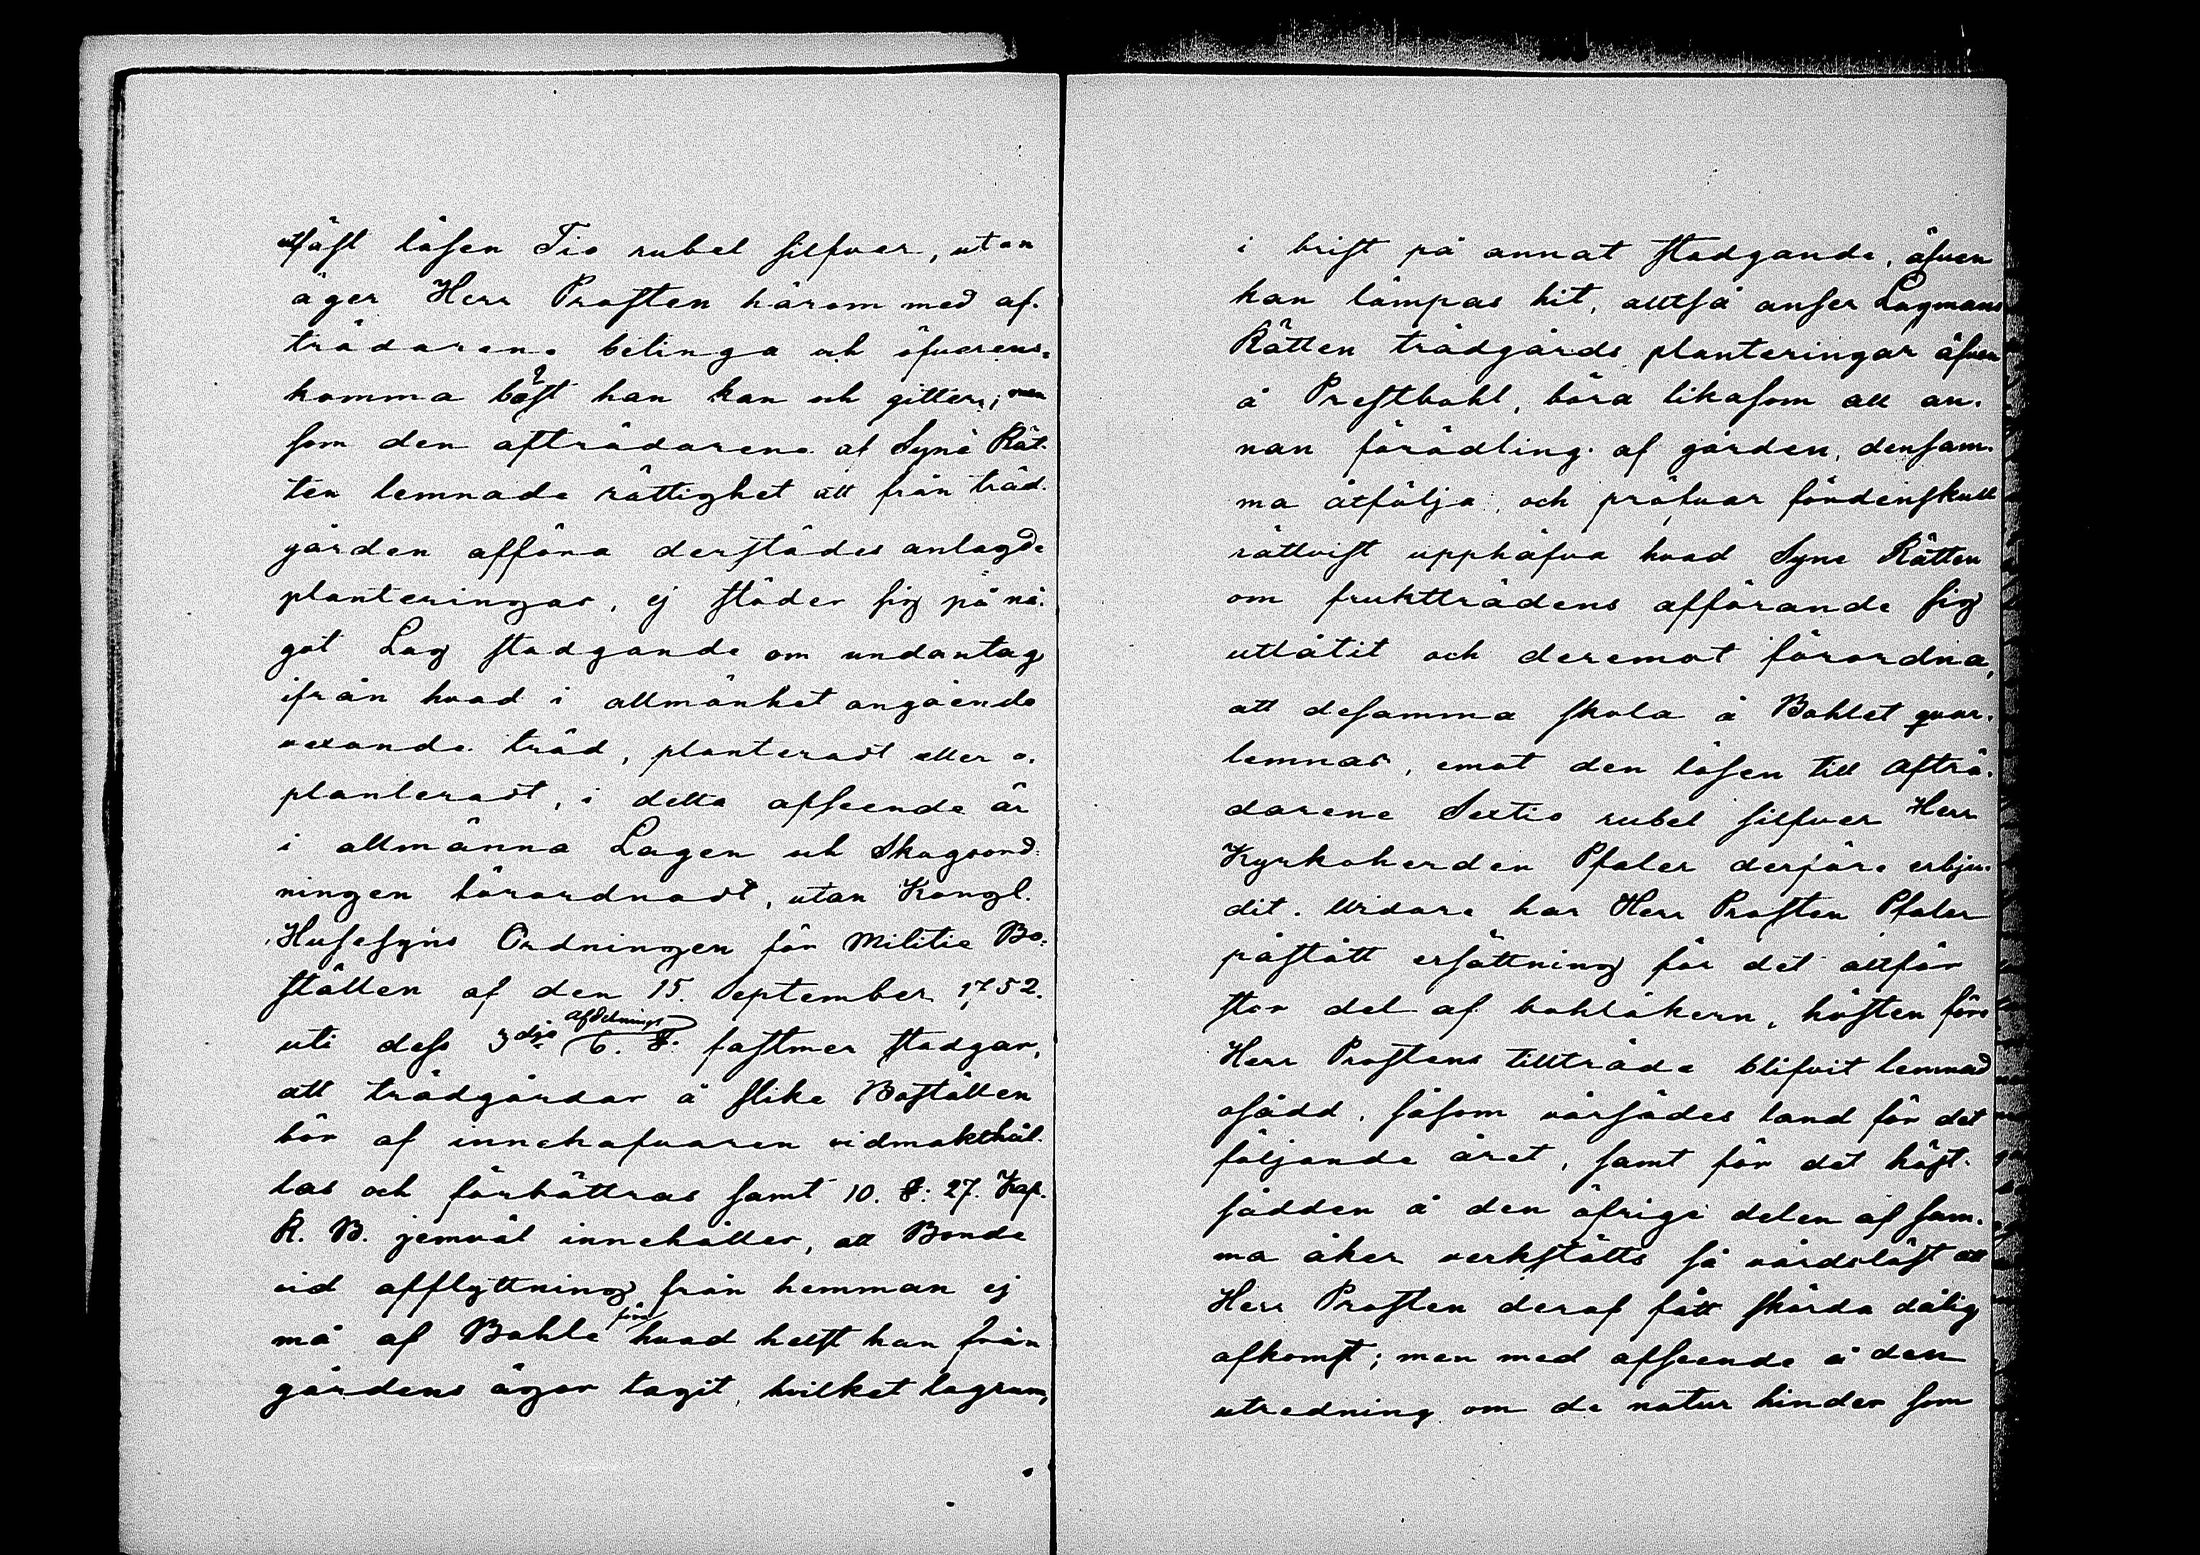 utfäst lösen Tio rubel silfver, utan
äger Herr Prosten härom med af-
trädarene betinga och öfverens-
komma bäst han kan och gitter; men
som den afträdarene af Syne Rät-
ten lemnade rättighet att från träd-
gården afföra derstädes anlagde
planteringar, ej stöder sig på nå-
got Lag stadgande om undantag
ifrån hvad i allmänhet angående
vexande träd, planteradt eller o-
planteradt, i detta afseende är
i allmänna Lagen och Skogsord-
ningen förordnadt, utan Kongl.
Husesyns Ordningen för Militie Bo-
ställen af den 15. September 1752.
afdelnings
uti dess 3dje 6. §. fastmer stadgar,
att trädgårdar å slike Boställen
bör af innehafvaren vidmakthål-
las och förbättras samt 10. §. 27. Kap.
R. B. jemväl innehåller, att Bonde
vid afflyttning från hemman ej
må af Bohle föra hvad helst han från
gårdens ägor tagit, hvilket lagrum,
i brist på annat stadgande, äfven
kan lämpas hit, alltså anser Lagmans
Rätten trädgårds planteringar äfven
å Prestbohl, böra likasom all an-
nan förädling af gården, densam-
ma åtfölja, och pröfvar fördenskull
rättvist upphäfva hvad Syne Rätten
om fruktträdens afförande sig
utlåtit och deremot förordna,
att desamma skola å Bohlet qvar-
lemnas, emot den lösen till afträ-
darene Sextio rubel silfver Herr
Kyrkoherden Pfaler derföre erbju-
dit. Vidare har Herr Prosten Pfaler
påstått ersättning för det alltför
stor del af bohlåkern, hösten före
Herr Prostens tillträde blifvit lemnad
osådd, såsom vårsådes land för det
följande året, samt för det höst-
sådden å den öfrige delen af sam-
ma åker verkställts så vårdslöst att
Herr Prosten deraf fått skörda dålig
afkomst; men med afseende å den
utredning om de natur hinder som